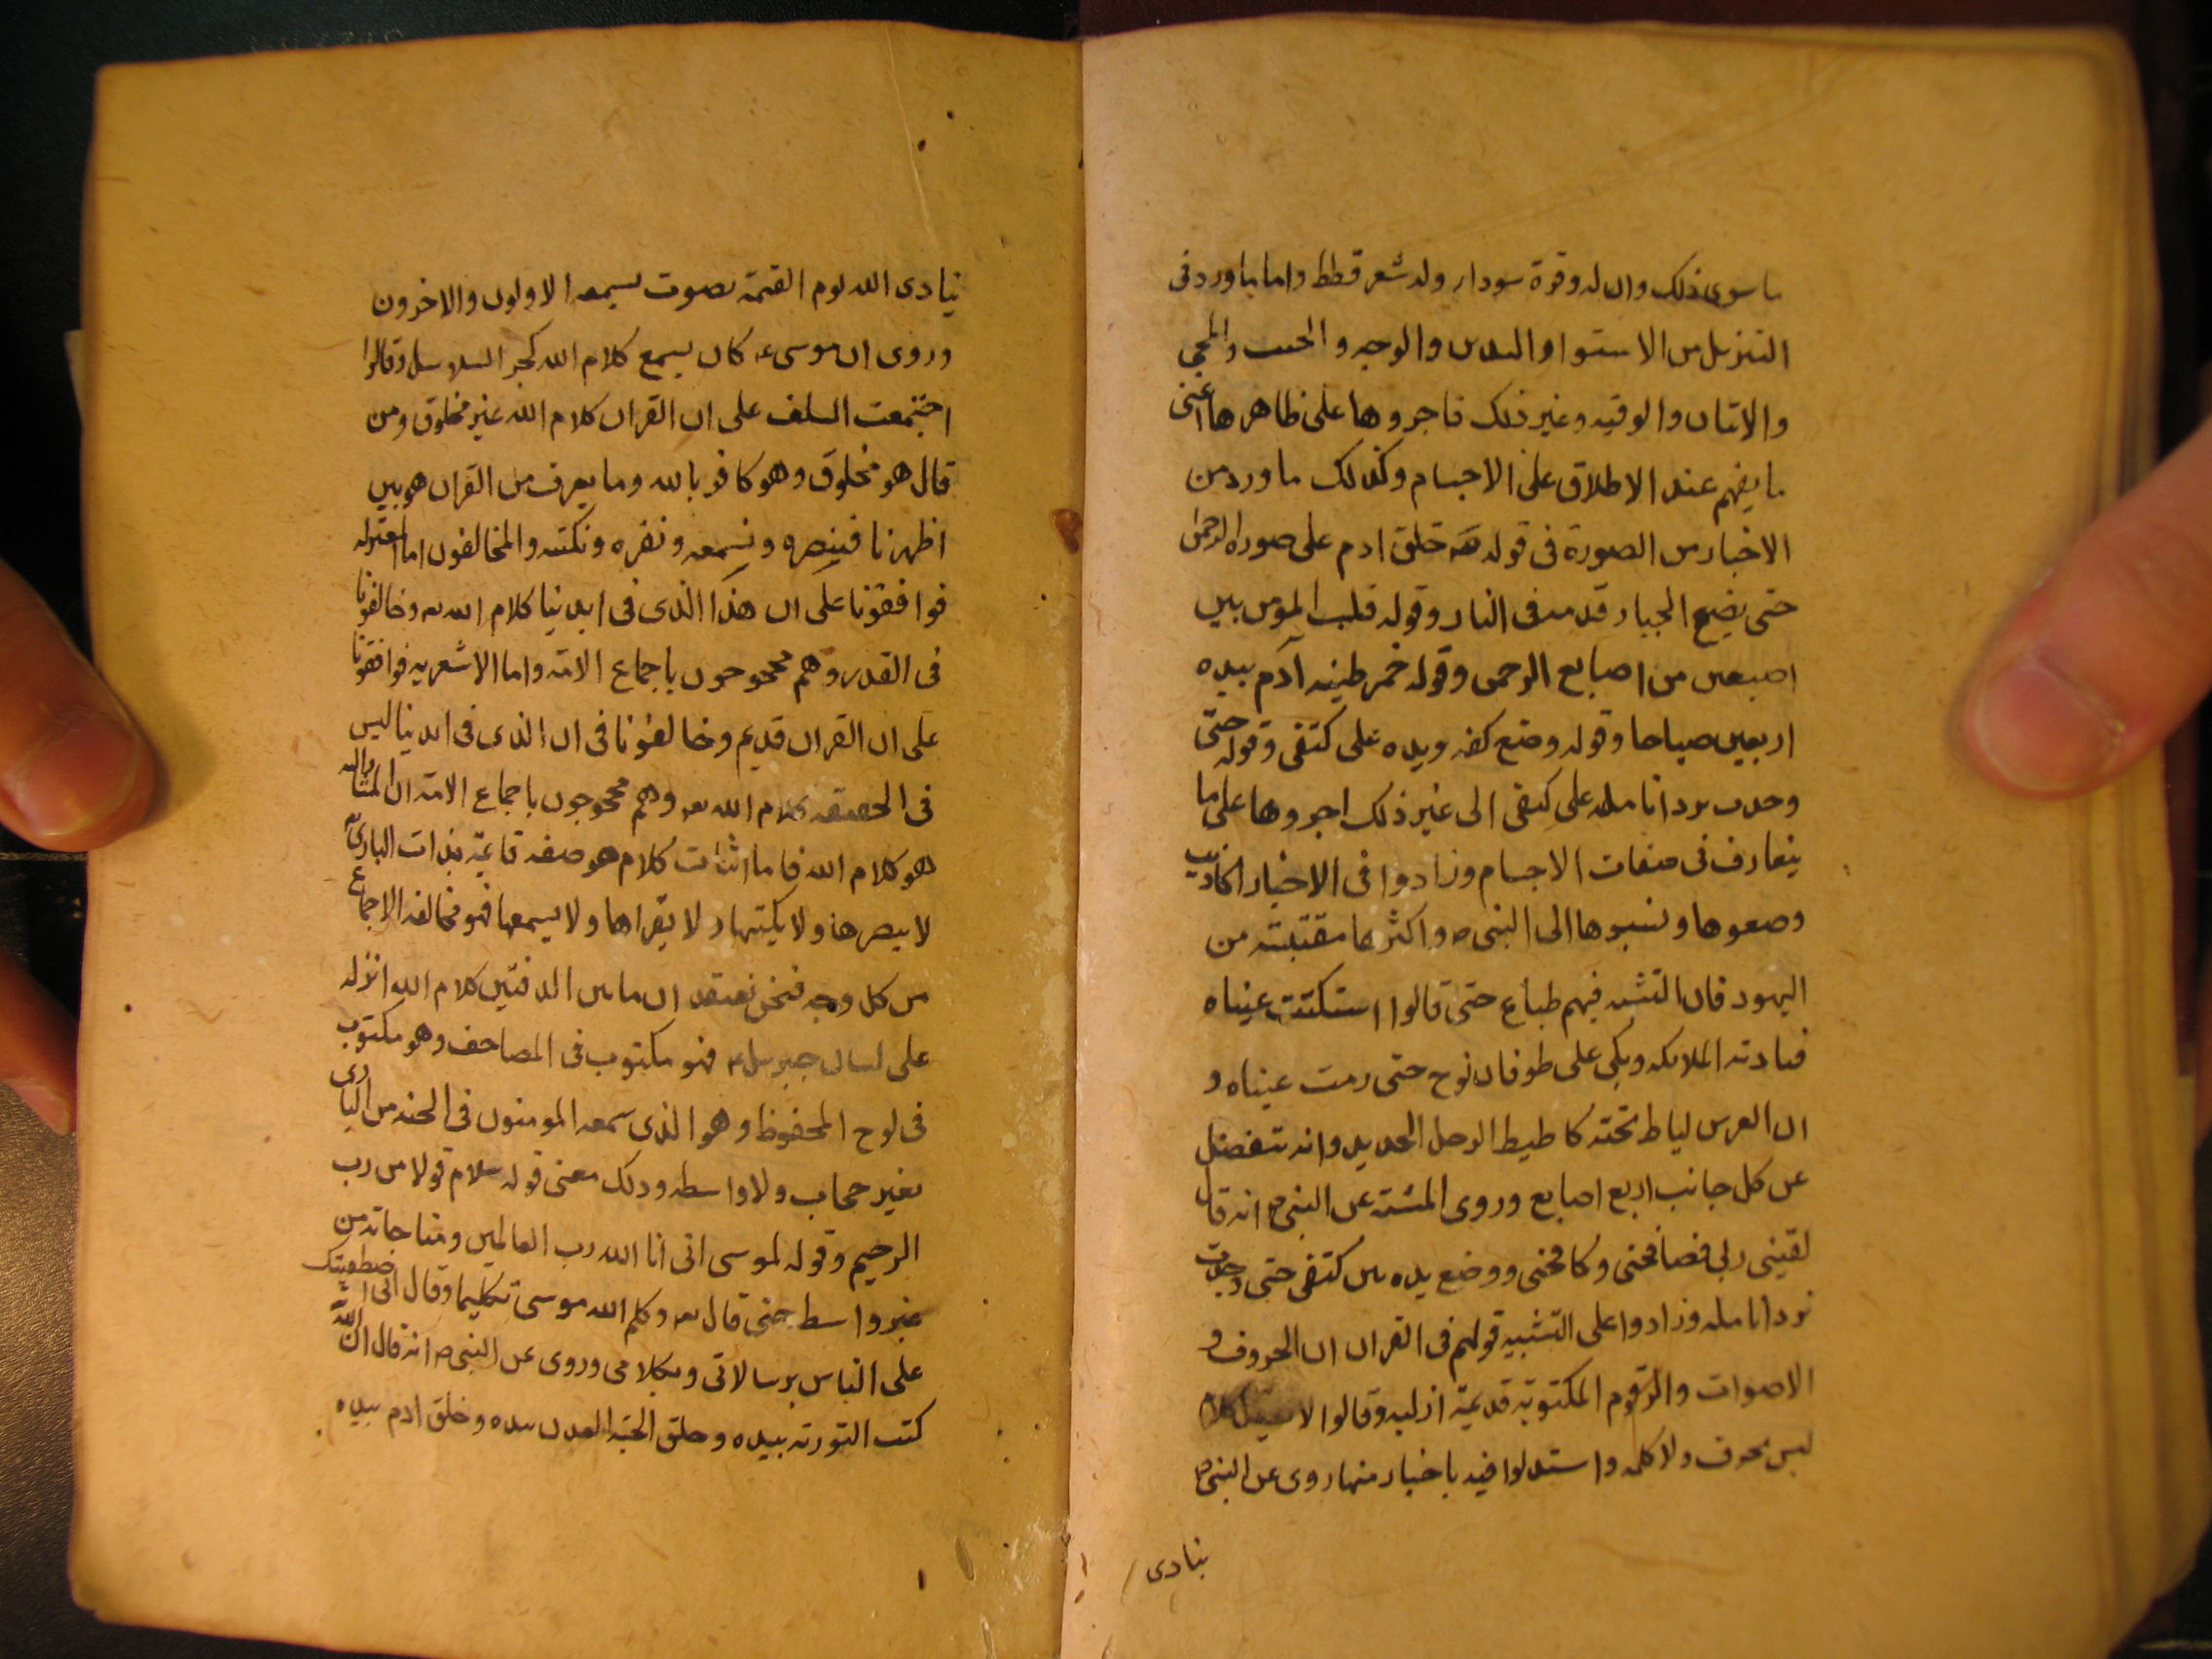 ما سوى ذلك وان له وفرة سوداء وله شعر قطط واما ما ورد فى
التنزيل من الاستوا واليدين والوجه والجنب والمجى
والاتيان والفوقيه وغير ذلك فاجروها على ظاهرها اعنى
ما يفهم عند الاطلاق على الاجسام وكذلك ما ورد من
الاخبار من الصورة فى قوله خلق ادم على صوره الرحمن
حتى يضع الجبار قدمه فى النار وقوله قلب المؤمن بين
اصبعين من اصابع الرحمن وقوله خمر طينه آدم بيده
اربعين صباحا وقوله وضع كفه ويده على كتفى وقوله حتى
وجدت برد انامله على كتفى الى غير ذلك اجروها على ما
يتعارف فى صفات الاجسام وزادوا فى الاخبار اكاذيب
وضعوها ونسبوها الى النبى ص واكثرها مقتبسه من
اليهود فان التشبه فيهم طباع حتى قالوا اشتكت عيناه
فعادته الملائكه وبكى على طوفان نوح حتى رمت عيناه و
ان العرش لياط تحته كاطيط الرحل الحديد وانه يتفضل
عن كل جانب اربع اصابع وروى المشبه عن النبى ص انه قال
لقينى ربى فصافحنى وكافحنى ووضع يده بين كتفى حتى وجدت
برد انامله وزادوا على التشبيه قولهم فى القران ان الحروف و
الاصوات والرقوم المكتوبة قديمة ازليه وقالوا لا كلام
ليس بحرف ولا كلمه واستدلوا فيه باخبار منها روى عن النبى ص
ينادى
ينادى الله يوم القيمة بصوت يسمعه الاولون والاخرون
وروى ان موسى ع كان يسمع كلام الله كجر السلاسل وقالوا
اجتمعت السلف على ان القران كلام الله غير مخلوق ومن
قال هو مخلوق وهو كافر بالله وما يعرف من القران هو بين
اظهرنا فينصره ونسمعه ونقره ونكتبه والمخالفون اما المعتزله
فوافقونا على ان هذا الذى فى ايدينا كلام الله تعه وخالفونا
فى القدر وهم محجوجون باجماع الامة واما الاشعريه فوافقونا
على ان القران قديم وخالفونا فى ان الذى فى ايدينا ليس
فى الحقيقه كلام الله تعه وهم محجوجون باجماع الامة ان المشار اليه
هو كلام الله فاما اثبات كلام هو صفه قائمة بذات البارى
لا يبصرها ولا يكتبها ولا يقراها ولا يسمعها فهو مخالفه الاجماع
من كل وجه فنحن نعتقد ان ما بين الدفتين كلام الله انزله
على لسان جبريل ع فهو مكتوب فى المصاحف وهو مكتوب
فى لوح المحفوظ وهو الذى سمعه المومنون فى الجنه من البارى
بغير حجاب ولا واسطه وذلك معنى قوله سلام قولا من رب
الرحيم وقوله لموسى انى انا الله رب العالمين ومناجاته من
غير واسط حتى قال تعه وكلم الله موسى تكليما وقال انى اصطفيتك
على الناس برسالاتى وبكلامى وروى عن النبى ص انه قال ان الله
كتب التورية بيده وخلق الجنه العدن بيده وخلق ادم بيده